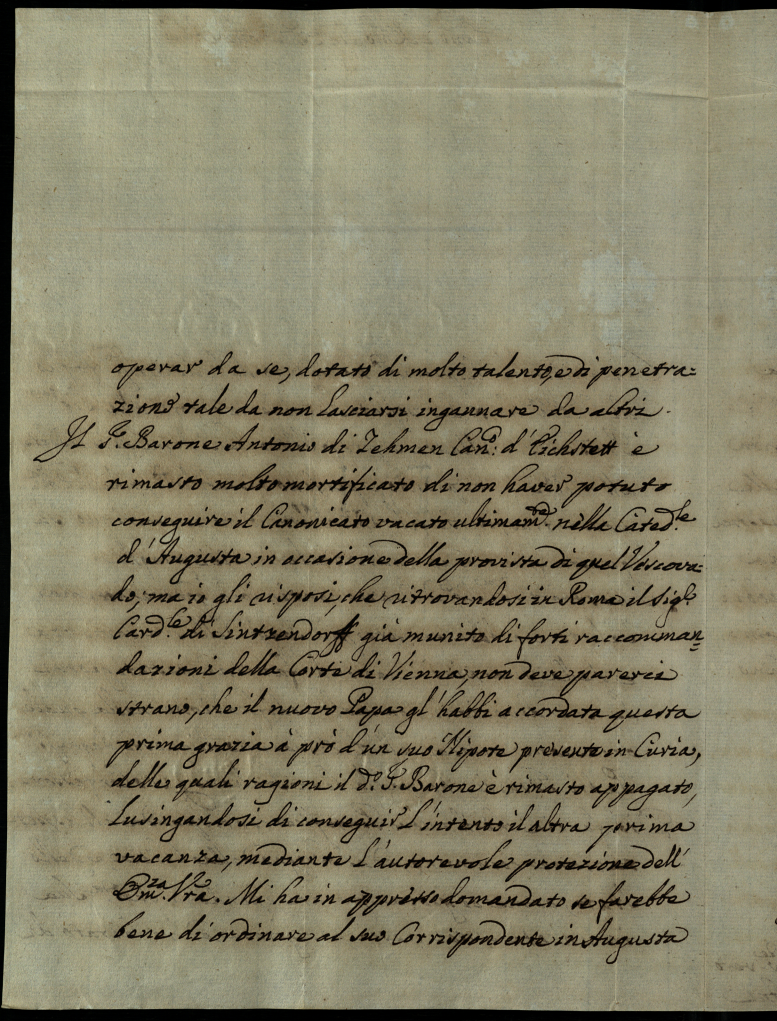 operar da se, dotato di molto talento, e di penetra=
zione tale da non lasciarsi ingannare da altri.
Il S. Barone Antonio di Zehmen Can.º d'Eichstett è
rimasto molto mortificato di non haver potuto
conseguire il Canonicato vacato ultimam.te nella Cated.le
d'Augusta in occasione della provista di quel Vescova=
do; ma io gli risposi, che ritrovandosi in Roma il Sig.r
Card.le di Sintzendorff già munito di forti raccoman=
dazioni della Corte di Vienna, non deve parerci
strano, che il nuovo Papa gl'habbi accordata questa
prima grazia à prò d'un suo Nipote presente in Curia,
delle quali ragioni il d.º S. Barone è rimasto appagato,
lusingandosi di conseguir l'intento il altra prima
vacanza, mediante l'autorevole protezione dell'
Em.za V.ra. Mi ha in appresso domandato se farebbe
bene di ordinare al suo Corrispondente in Augusta